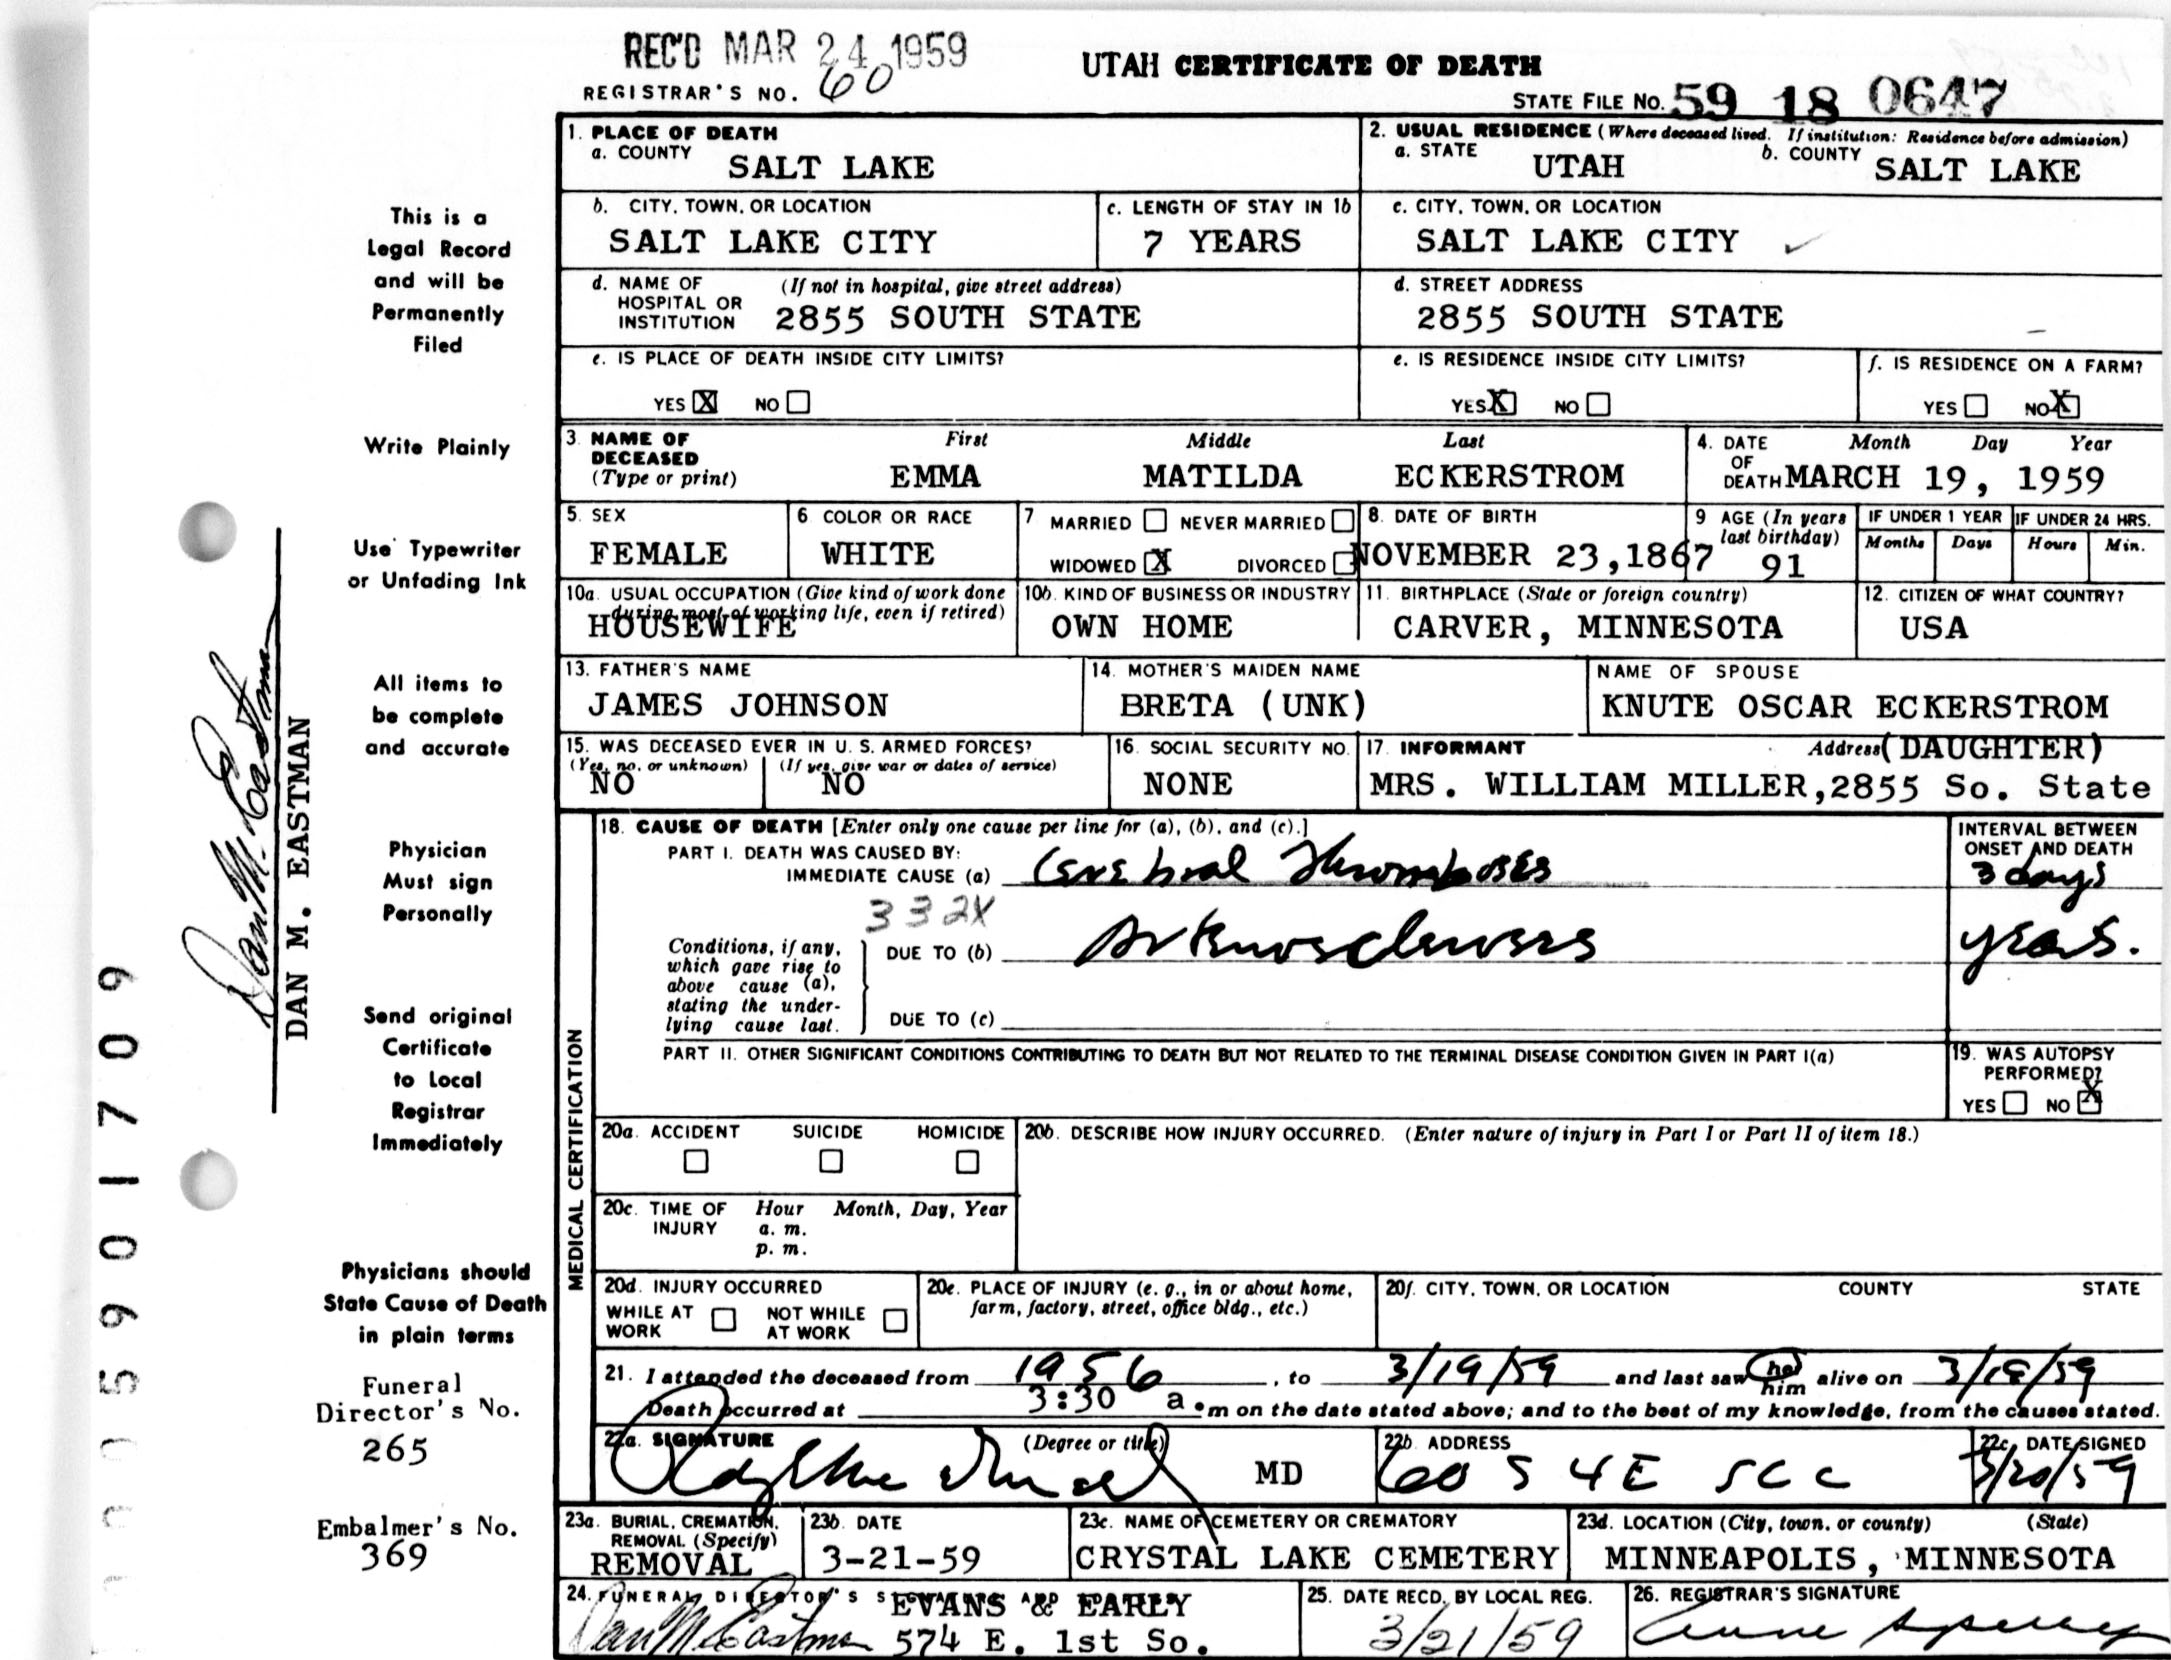 REC'D MAR 24 1959
REGISTRAR'S NO. 60
UTAH CERTIFICATE OF DEATH
STATE FILE NO. 59 18 0647
1. PLACE OF DEATH
a. COUNTY SALT LAKE
2. USUAL RESIDENCE (Where deceased lived. If institution: Residence before admission)
a. STATE UTAH b. COUNTY SALT LAKE
b. CITY, TOWN, OR LOCATION
SALT LAKE CITY
c. LENGTH OF STAY IN 1b
7 YEARS
c. CITY, TOWN, OR LOCATION
SALT LAKE CITY
d. NAME OF HOSPITAL OR INSTITUTION (If not in hospital, give street address)
2855 SOUTH STATE
d. STREET ADDRESS
2855 SOUTH STATE
e. IS PLACE OF DEATH INSIDE CITY LIMITS?
YES X NO
e. IS RESIDENCE INSIDE CITY LIMITS?
YES X NO
f. IS RESIDENCE ON A FARM?
YES NO X
3. NAME OF DECEASED (Type or print)
First Middle Last
EMMA MATILDA ECKERSTROM
4. DATE OF DEATH Month Day Year
MARCH 19, 1959
5. SEX
FEMALE
6 COLOR OR RACE
WHITE
7 MARRIED NEVER MARRIED
WIDOWED X DIVORCED
8. DATE OF BIRTH
NOVEMBER 23,1867
9 AGE (In years last birthday)
91
IF UNDER 1 YEAR
Months Days
IF UNDER 24 HRS.
Hours Min.
10a. USUAL OCCUPATION (Give kind of work done during most of working life, even if retired)
HOUSEWIFE
10b. KIND OF BUSINESS OR INDUSTRY
OWN HOME
11. BIRTHPLACE (State or foreign country)
CARVER, MINNESOTA
12. CITIZEN OF WHAT COUNTRY?
USA
13. FATHER'S NAME
JAMES JOHNSON
14. MOTHER'S MAIDEN NAME
BRETA (UNK)
NAME OF SPOUSE
KNUTE OSCAR ECKERSTROM
15. WAS DECEASED EVER IN U. S. ARMED FORCES?
(Yes, no, or unknown) (If yes, give war or dates of service)
NO NO
16. SOCIAL SECURITY NO.
NONE
17. INFORMANT Address (DAUGHTER)
MRS. WILLIAM MILLER, 2855 So. State
MEDICAL CERTIFICATION
18. CAUSE OF DEATH [Enter only one cause per line for (a), (b), and (c).]
PART I. DEATH WAS CAUSED BY:
IMMEDIATE CAUSE (a) Cerebral Thrombosis
INTERVAL BETWEEN ONSET AND DEATH
3 days
332X
Conditions, if any, which gave rise to above cause (a), stating the underlying cause last.
DUE TO (b) Arteriosclerosis
years.
DUE TO (c)
PART II. OTHER SIGNIFICANT CONDITIONS CONTRIBUTING TO DEATH BUT NOT RELATED TO THE TERMINAL DISEASE CONDITION GIVEN IN PART I(a)
19. WAS AUTOPSY PERFORMED?
YES NO X
20a. ACCIDENT SUICIDE HOMICIDE
20b. DESCRIBE HOW INJURY OCCURRED. (Enter nature of injury in Part I or Part II of item 18.)
20c. TIME OF INJURY Hour a. m. p. m. Month, Day, Year
20d. INJURY OCCURRED
WHILE AT WORK NOT WHILE AT WORK
20e. PLACE OF INJURY (e. g., in or about home, farm, factory, street, office bldg., etc.)
20f. CITY, TOWN, OR LOCATION COUNTY STATE
21. I attended the deceased from 1956, to 3/19/59 and last saw her him alive on 3/18/59
Death occurred at 3:30 a.m on the date stated above; and to the best of my knowledge, from the causes stated.
22a. SIGNATURE (Degree or title)
MD
22b. ADDRESS
60 S 4E SLC
22c. DATE SIGNED
3/20/59
23a. BURIAL, CREMATION, REMOVAL (Specify)
REMOVAL
23b. DATE
3-21-59
23c. NAME OF CEMETERY OR CREMATORY
CRYSTAL LAKE CEMETERY
23d. LOCATION (City, town, or county) (State)
MINNEAPOLIS, MINNESOTA
24. FUNERAL DIRECTOR'S
EVANS & EARLY
Dan M. Eastman 574 E. 1st So.
25. DATE RECD. BY LOCAL REG.
3/21/59
26. REGISTRAR'S SIGNATURE
This is a
Legal Record
and will be
Permanently
Filed
Write Plainly
Use Typewriter
or Unfading Ink
All items to
be complete
and accurate
Physician
Must sign
Personally
Send original
Certificate
to Local
Registrar
Immediately
Physicians should
State Cause of Death
in plain terms
Funeral
Director's No.
265
Embalmer's No.
369
Dan M. Eastman
DAN M. EASTMAN
005901709